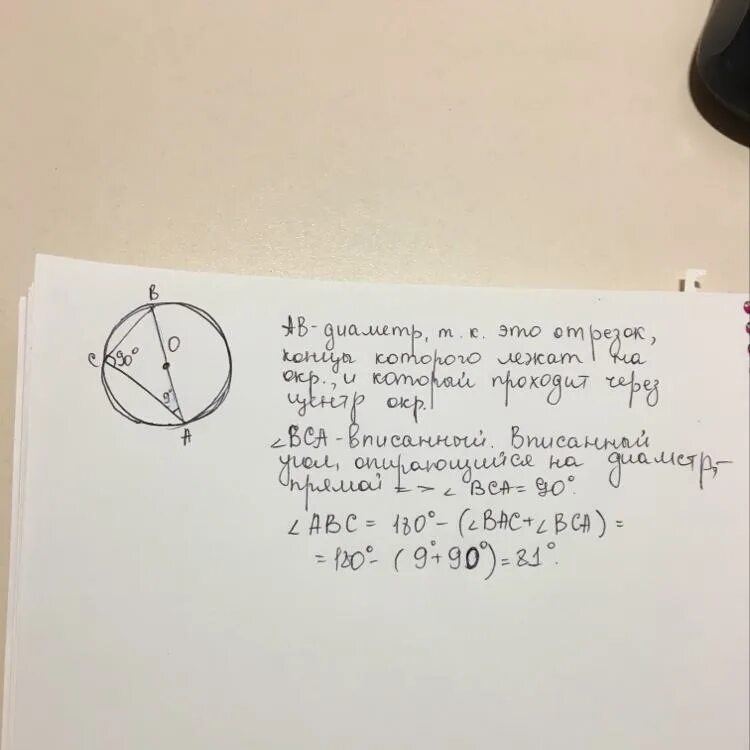 B
C 90° O
9°
A
АВ - диаметр, т. к. это отрезок,
концы которого лежат на
окр., и который проходит через
центр окр.
∠BCA - вписанный. Вписанный
угол, опирающийся на диаметр, -
прямой => ∠ BCA = 90°.
∠ABC = 180° - (∠BAC + ∠BCA) =
= 180° - (9° + 90°) = 81°.